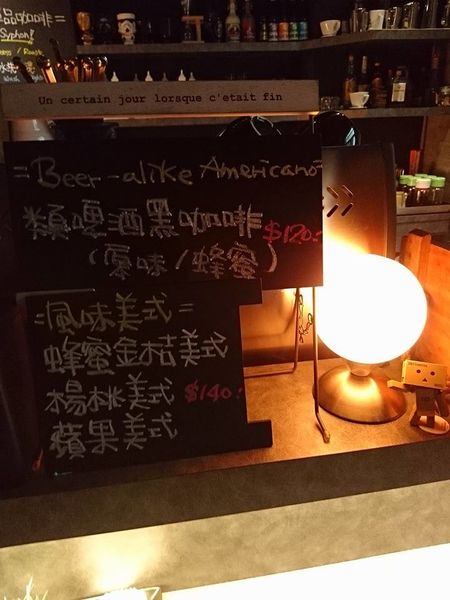 品咖啡=
Syphon!
Un certain jour lorsque c'etait fin
=Beer-alike Americano=
類啤酒黑咖啡 $120.
(原味/蜂蜜)
=風味美式=
蜂蜜金桔美式
楊桃美式 $140.
蘋果美式